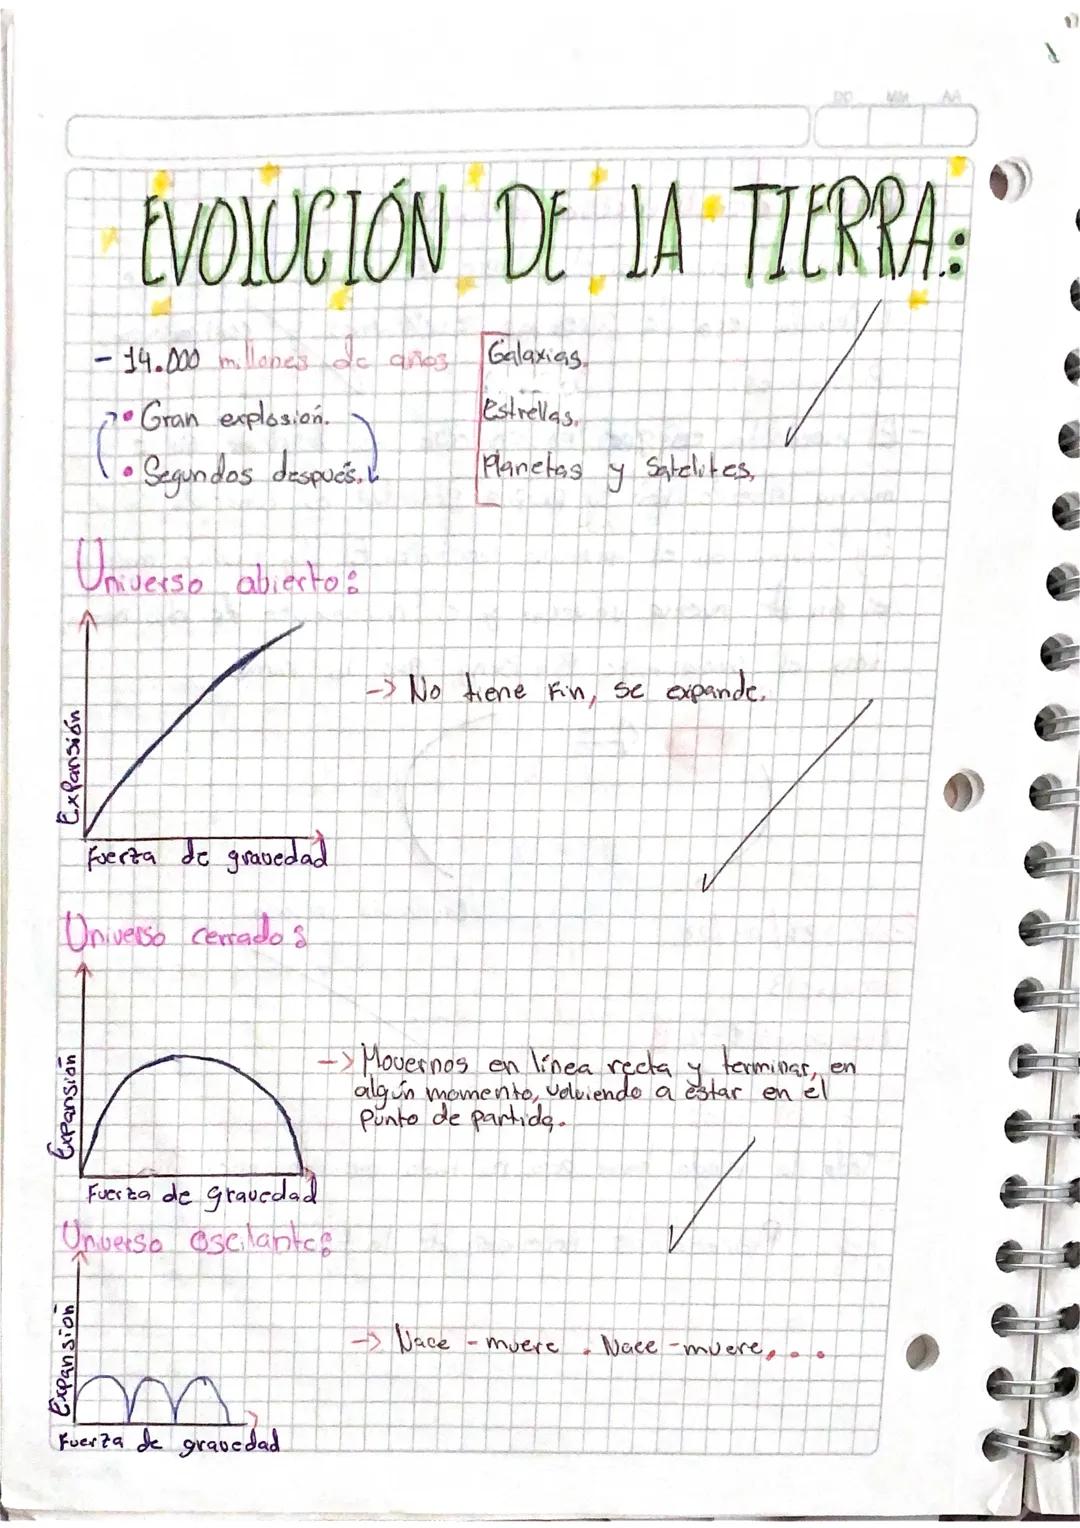 EVOLUCIÓN DE LA TIERRA:
- 14.000 millones de años
• Gran explosión.
• Segundos después.
Galaxias.
Estrellas.
Planetas y Satelites.
Universo abierto:
Expansión
Fuerza de gravedad
-> No tiene Fin, se expande.
Universo cerrado:
Expansión
Fuerza de gravedad
-> Movernos en línea recta y terminar, en
algún momento, volviendo a estar en el
Punto de partida.
Universo oscilante:
Expansión
Fuerza de gravedad
-> Nace - muere . Nace - muere, . . .